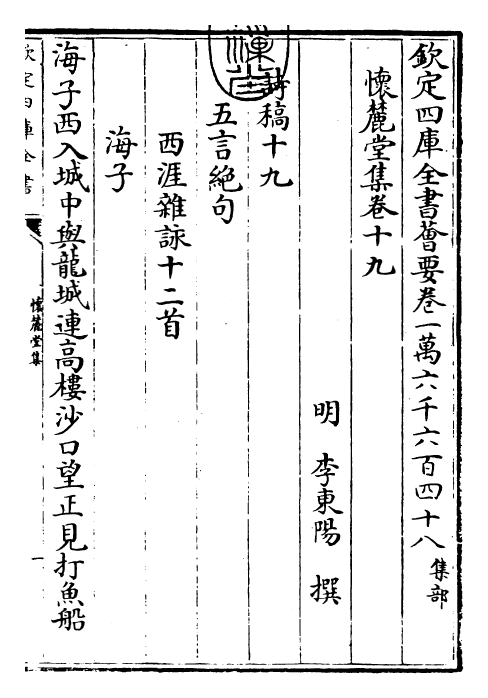 欽定四庫全書薈要卷一萬六千六百四十八 集部
懷麓堂集卷十九
明 李東陽 撰
詩稿十九
五言絶句
西涯雜詠十二首
海子
海子西入城中與龍城連高樓沙口望正見打魚船
欽定四庫全書
懷麓堂集
一